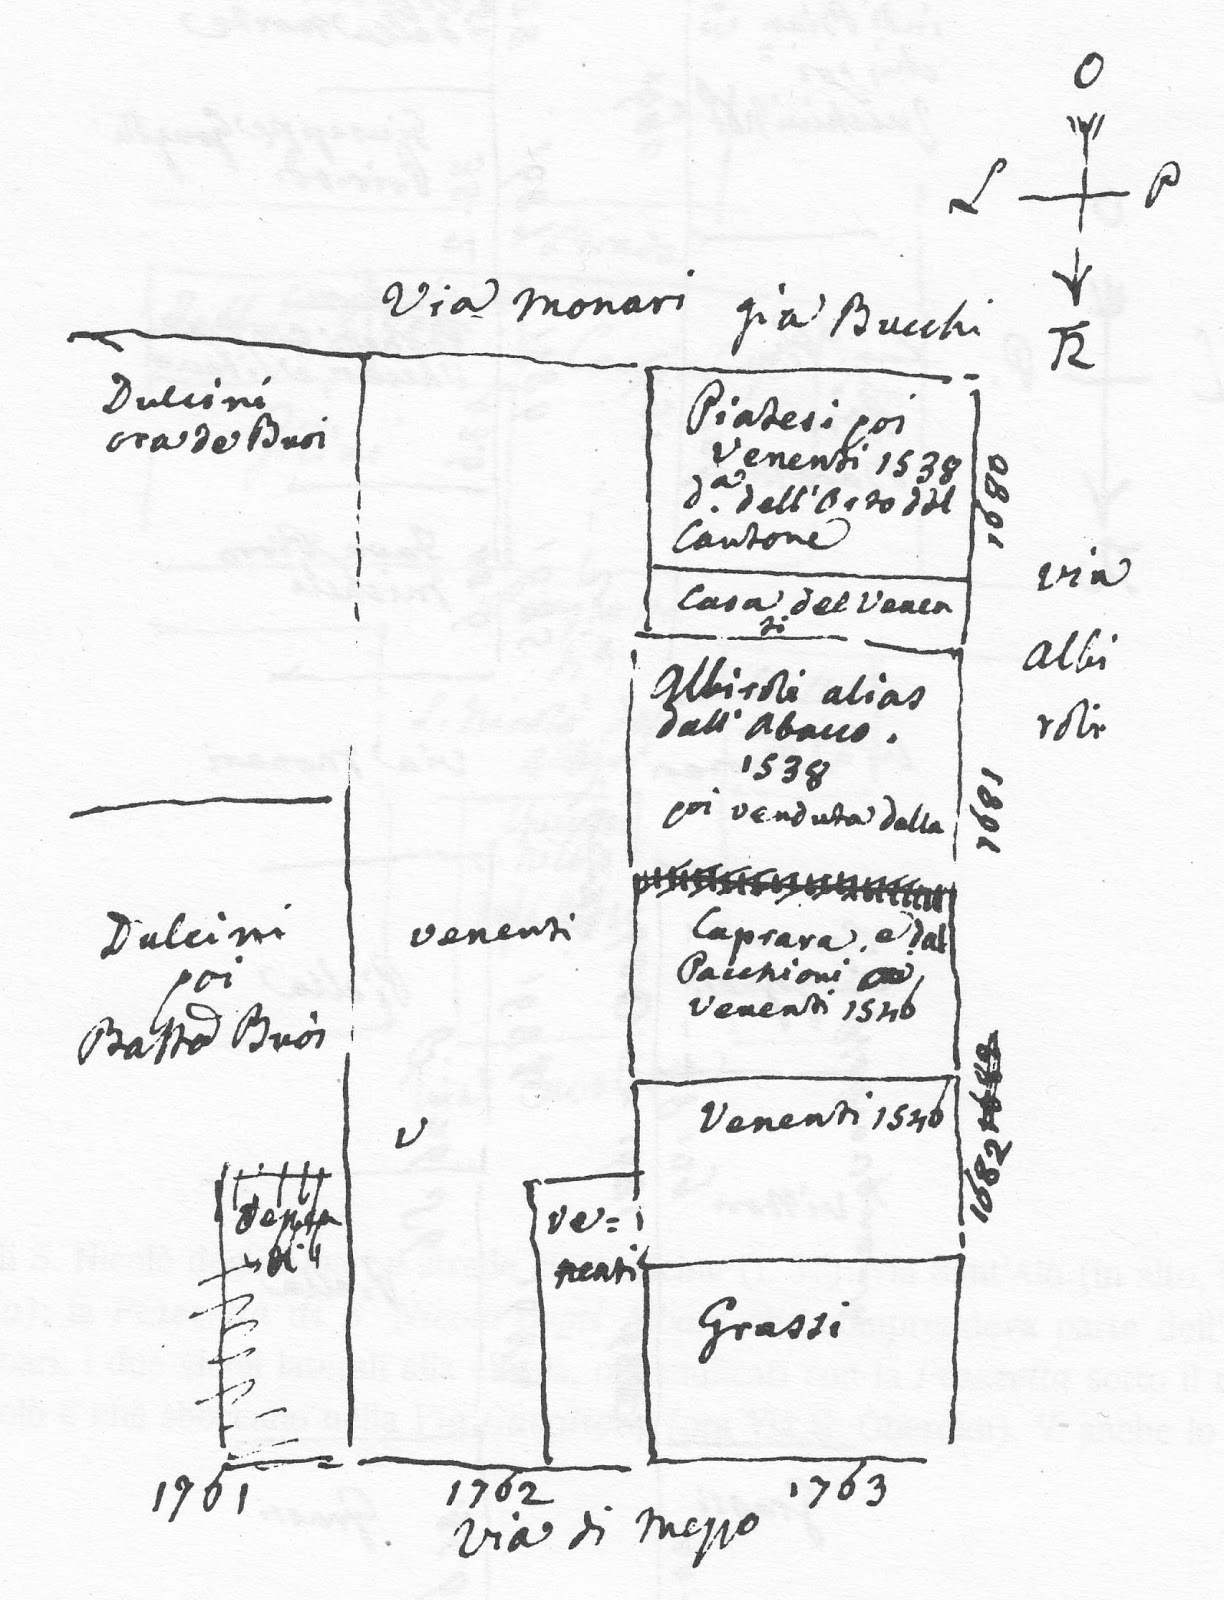 O
L P
TR
Via Monari già Bucchi
Dulcini
ora de Buoi
Piatesi poi
Venenti 1538
d.a dell'Orto del
Cantone
1680
Casa del Venen
ti
via
Albi
roli
Albiroli alias
dall'Abacco.
1538
poi venduta dalla
1681
Caprara, e dal
Pacchioni
Venenti 1546
Dulcini
poi
Batta Buoi
venenti
V
Venenti 1546
1682
ve=
nenti
Grassi
1761
1762
1763
Via di Mezzo